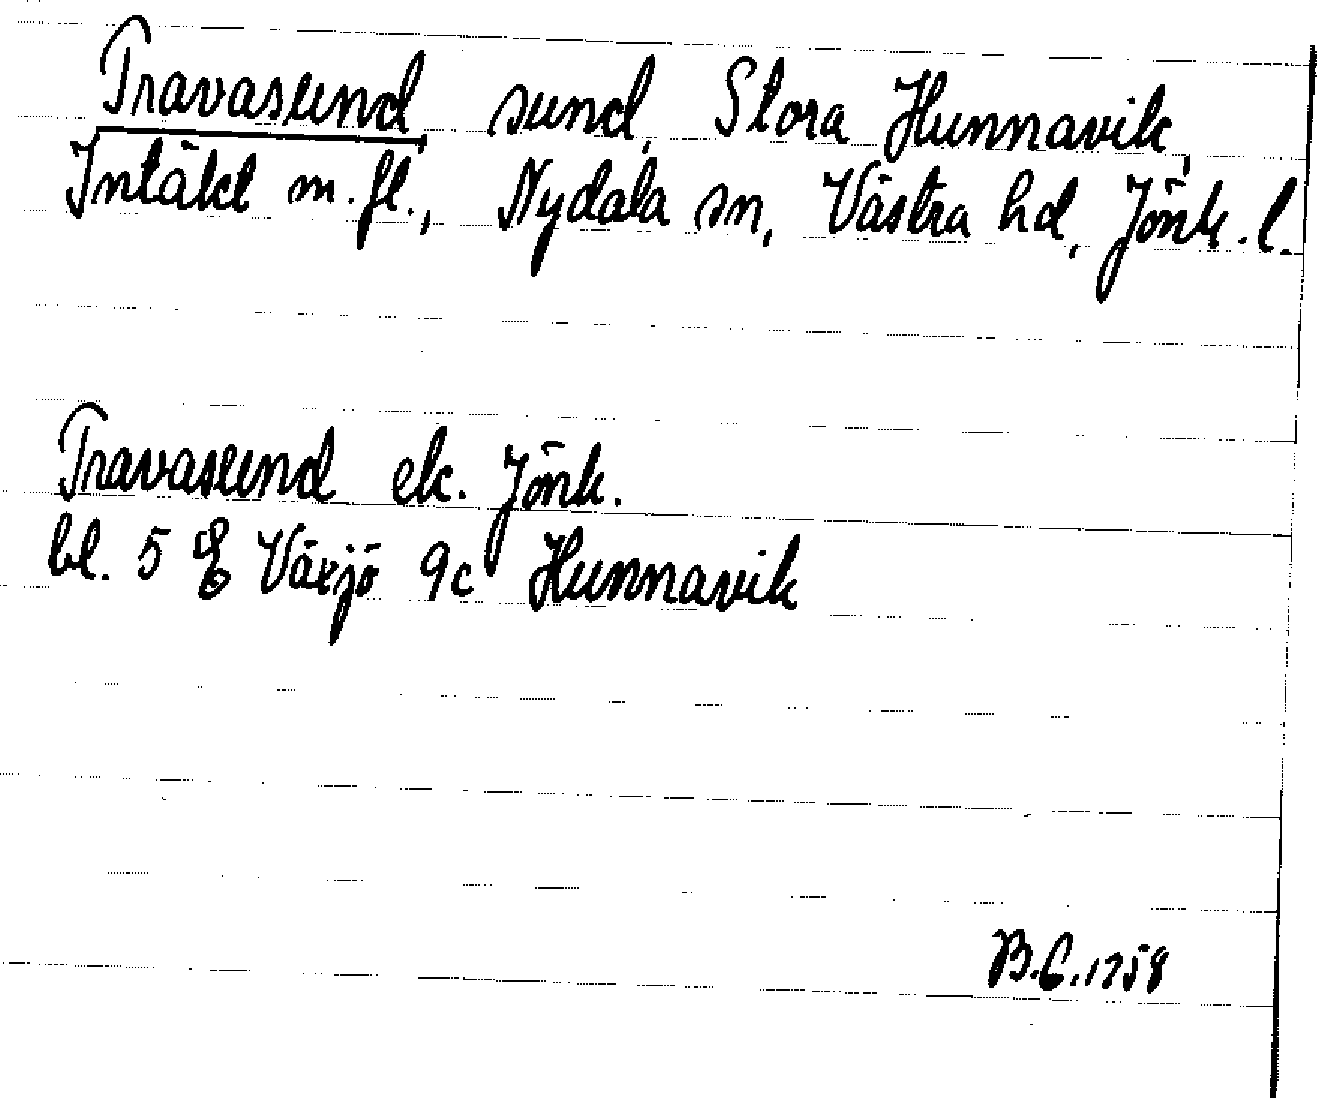 Travasund, sund, Stora Hunnavik,
Intäkt m.fl., Nydala sn, Västra hd, Jönk.l.
Travasund ek. Jönk.
bl. 5 E Växjö 9c Hunnavik
B.C. 1758